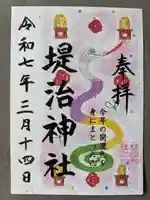 奉拝
今年の開運を
身にまとう
堤治神社
令和七年三月十四日